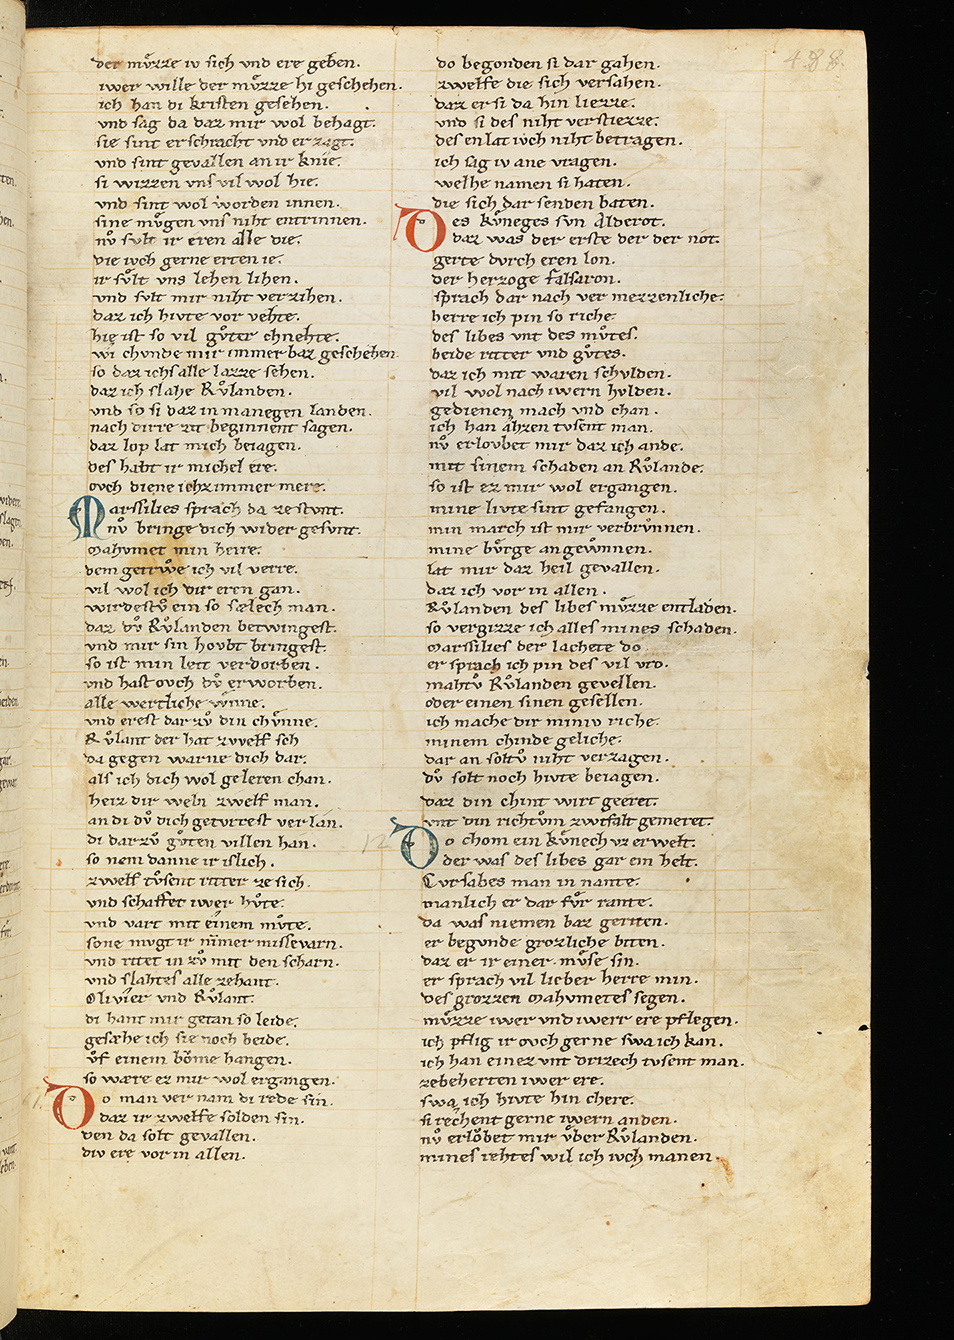 der mv̊zze iv sich vnd ere geben.
iwer wille der mv̊zze hi geschehen.
ich han di kristen gesehen.
vnd sag da daz mir wol behagt.
sie sint erschracht vnd er zagt.
vnd sint gevallen an ir knie.
si wizzen vns vil wol hie.
vnd sint wol worden innen.
sine mv̊gen vns niht entrinnen.
nv̊ svlt ir eren alle die.
die iwch gerne erten ie.
ir sv̊lt vns lehen lihen.
vnd svlt mir niht verzihen.
daz ich hivte vor vehte.
hie ist so vil gv̊ter chnehte.
wi chvnde mir immer baz geschehen.
so daz ichs alle lazze sehen.
daz ich slahe Rv̊landen.
vnd so si daz in manegen landen.
nach dirre zit beginnent sagen.
daz lop lat mich beiagen.
des habt ir michel ere.
ovch diene ichz immer mere.
Marssilies sprach da ze stvnt.
nv̊ bringe dich wider gesvnt.
Mahvmet min herre.
dem getrwe ich vil verre.
vil wol ich dir eren gan.
wirdestv̊ ein so sælech man.
daz dv̊ Rv̊landen betwingest.
vnd mir sin hovbt bringest.
so ist min leit verdorben.
vnd hast ovch dv̊ erworben.
alle wertliche wnne.
vnd erest dar zv̊ din chv̊nne.
Rv̊lant der hat zwelf sch
da gegen warne dich dar.
als ich dich wol geleren chan.
heiz dir weln zwelf man.
an di dv̊ dich getvrrest verlan.
di darzv̊ gv̊ten willen han.
so nem danne ir islich.
zwelf tv̊sent ritter ze sich.
vnd schaffet iwer hv̊te.
vnd vart mit einem mv̊te.
sone mvgt ir nimer missevarn.
vnd ritet in zv̊ mit den scharn.
vnd slahtes alle zehant.
Olivier vnd Rv̊lant.
di hant mir getan so leide.
gesæhe ich sie noch beide.
v̊f einem bo̊me hangen.
so wære ez mir wol ergangen.
Do man vernam di rede sin.
daz ir zwelfe solden sin.
den da solt gevallen.
div ere vor in allen.
do begonden si dar gahen.
zwelfe die sich versahen.
daz er si da hin liezze.
vnd si des niht verstiezze.
des en lat iwch niht betragen.
ich sag iv ane vragen.
welhe namen si haten.
die sich dar senden baten.
Des kv̊neges svn Alderot.
daz was der erste der der not.
gerte dvrch eren lon.
der herzoge Falsaron.
sprach dar nach vermezzenliche.
herre ich pin so riche.
des libes vnt des mv̊tes.
beide ritter vnd gv̊tes.
daz ich mit waren schvlden.
vil wol nach iwern hvlden.
gedienen mach vnd chan.
ich han ahzen tvsent man.
nv̊ erlovbet mir daz ich ande.
mit sinem schaden an Rv̊lande.
so ist ez mir wol ergangen.
mine livte sint gefangen.
min march ist mir verbrv̊nnen.
mine bv̊rge angewnnen.
lat mir daz heil gevallen.
daz ich vor in allen.
Rv̊landen des libes mv̊zze entladen.
so vergizze ich alles mines schaden.
Marssilies der lachete do.
er sprach ich pin des vil vro.
mahtv̊ Rv̊landen gevellen.
oder einen sinen gesellen.
ich mache dir miniv riche.
minem chinde geliche.
dar an soltv̊ niht verzagen.
dv̊ solt noch hivte beiagen.
daz din chint wirt geeret.
vnt din richtv̊m zwifalt gemeret.
Do chom ein kv̊nech vz erwelt.
der was des libes gar ein helt.
Cvrsabes man in nante.
manlich er dar fv̊r rante.
da was niemen baz geriten.
er begvnde grozliche biten.
daz er ir einer mv̊se sin.
er sprach vil lieber herre min.
des grozzen Mahvmetes segen.
mv̊zze iwer vnd iwerr ere pflegen.
ich pflig ir ovch gerne swa ich kan.
ich han einez vnt drizech tvsent man.
zebeherten iwer ere.
swa ich hivte hin chere.
si rechent gerne iwern anden.
nv̊ erlo̊bet mir v̊ber Rv̊landen.
mines rehtes wil ich iwch manen.